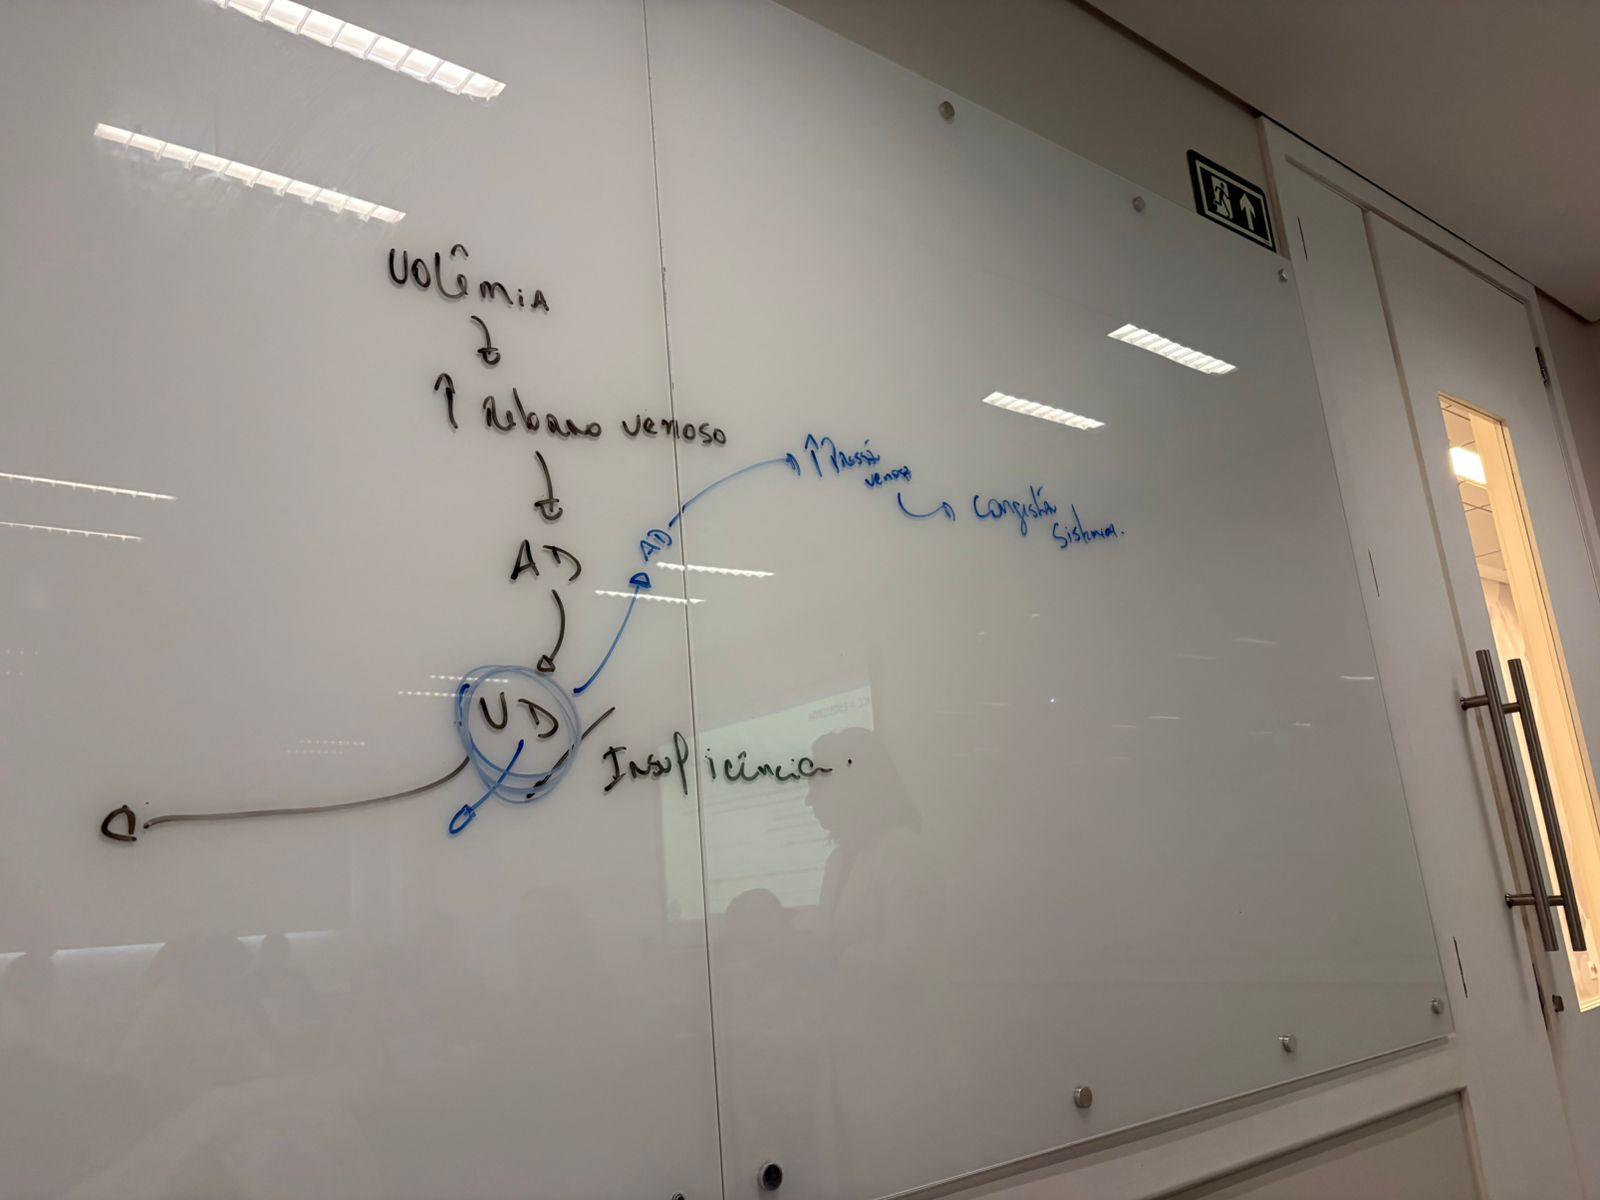 volêmia
↑ Retorno venoso
AD
VD
Insuficiência.
AD
↑ Pressã
venosa
Congestã
Sistêmica.